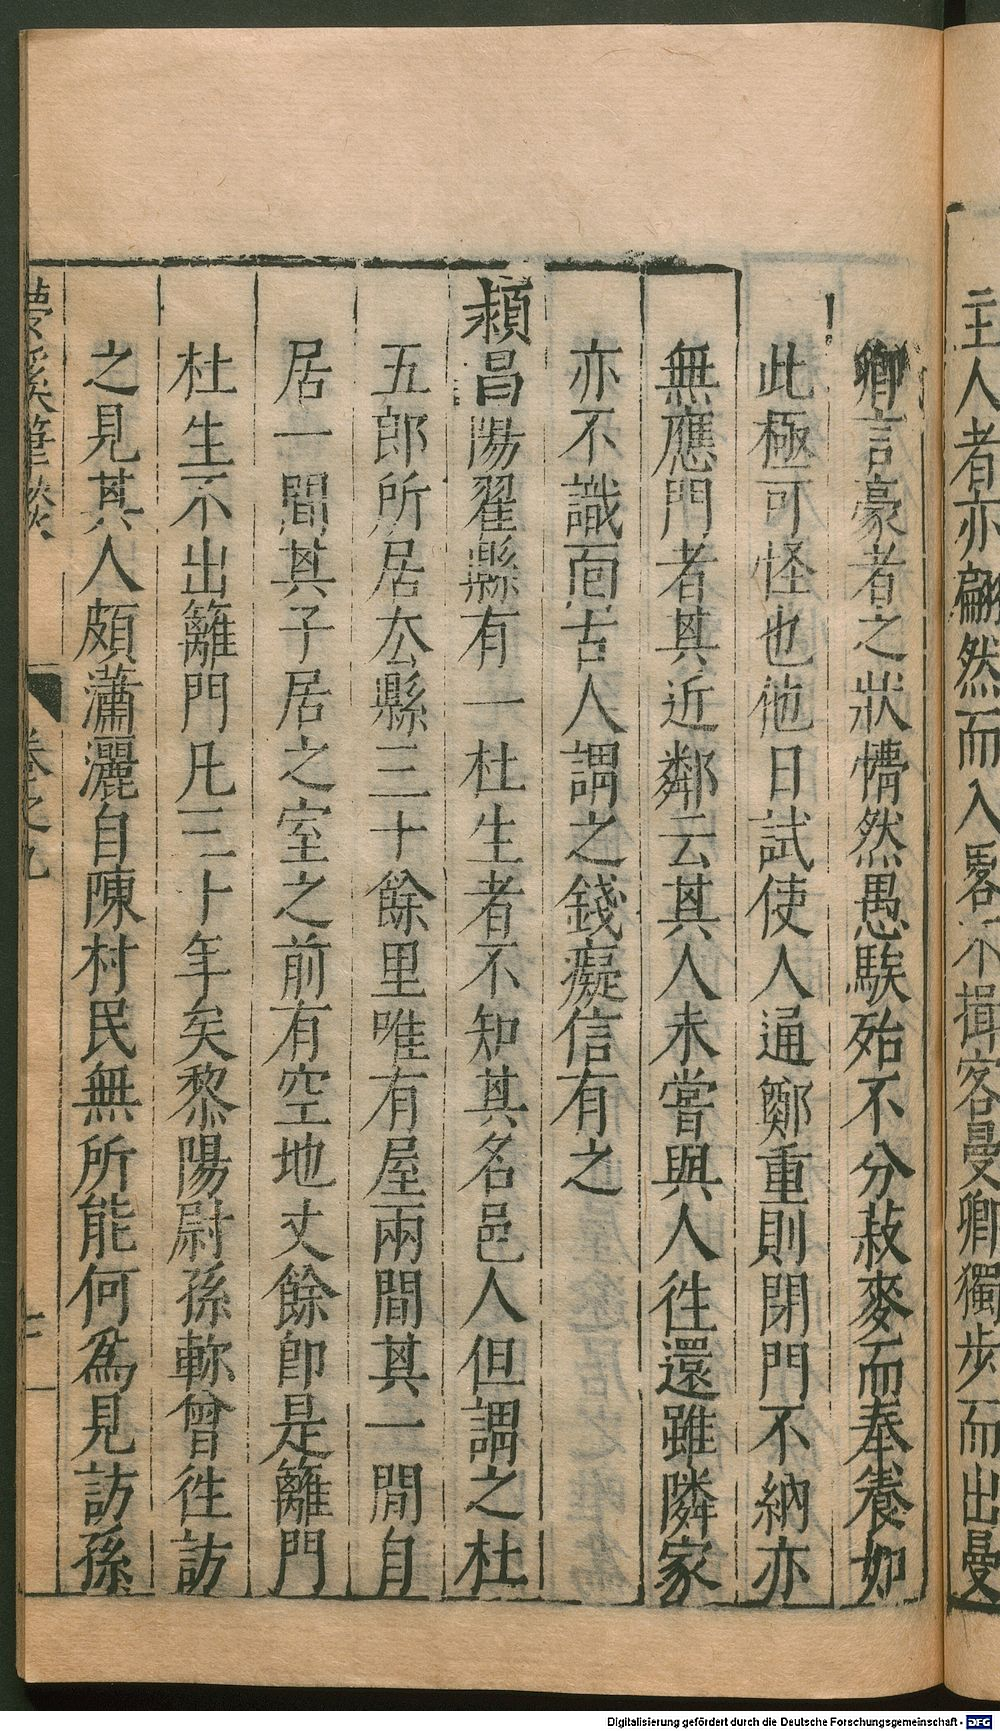 主人者亦翩然而入畧不揖客曼卿獨步而出曼
卿言豪者之狀懵然愚騃殆不分菽麥而奉養如
此極可怪也他日試使人通鄭重則閉門不納亦
無應門者其近鄰云其人未嘗與人徃還雖隣家
亦不識面古人謂之錢癡信有之
頴昌陽翟縣有一杜生者不知其名邑人但謂之杜
五郎所居去縣三十餘里唯有屋兩間其一間自
居一間其子居之室之前有空地丈餘卽是籬門
杜生不出籬門凡三十年矣黎陽尉孫軫曾徃訪
之見其人頗瀟灑自陳村民無所能何爲見訪孫
夢溪筆談 卷之九
Digitalisierung gefördert durch die Deutsche Forschungsgemeinschaft - DFG